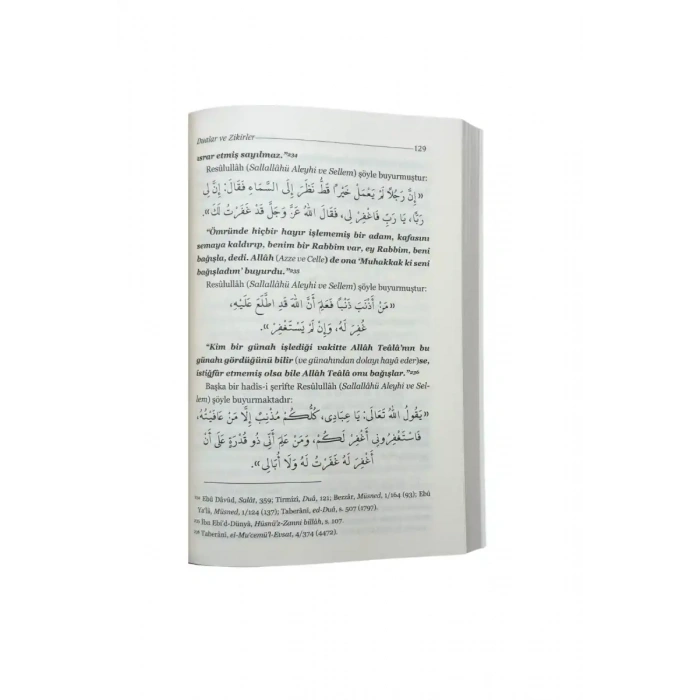 Dualar ve Zikirler
129
ısrar etmiş sayılmaz."²³⁴
Resûlullâh (Sallallâhü Aleyhi ve Sellem) şöyle buyurmuştur:
«إِنَّ رَجُلًا لَمْ يَعْمَلْ خَيْرًا قَطُّ نَظَرَ إِلَى السَّمَاءِ فَقَالَ: إِنَّ لِي
رَبًّا، يَا رَبِّ فَاغْفِرْ لِي، فَقَالَ اللهُ عَزَّ وَجَلَّ قَدْ غَفَرْتُ لَكَ».
"Ömründe hiçbir hayır işlememiş bir adam, kafasını
semaya kaldırıp, benim bir Rabbim var, ey Rabbim, beni
bağışla, dedi. Allâh (Azze ve Celle) de ona 'Muhakkak ki seni
bağışladım' buyurdu."²³⁵
Resûlullâh (Sallallâhü Aleyhi ve Sellem) şöyle buyurmuştur:
«مَنْ أَذْنَبَ ذَنْبًا فَعَلِمَ أَنَّ اللهَ قَدِ اطَّلَعَ عَلَيْهِ،
غُفِرَ لَهُ، وَإِنْ لَمْ يَسْتَغْفِرْ».
"Kim bir günah işlediği vakitte Allâh Teâlâ'nın bu
günahı gördüğünü bilir (ve günahından dolayı haya eder)se,
istiğfâr etmemiş olsa bile Allâh Teâlâ onu bağışlar."²³⁶
Başka bir hadîs-i şerîfte Resûlullâh (Sallallâhü Aleyhi ve Sel-
lem) şöyle buyurmaktadır:
«يَقُولُ اللهُ تَعَالَى: يَا عِبَادِي، كُلُّكُمْ مُذْنِبٌ إِلَّا مَنْ عَافَيْتُهُ،
فَاسْتَغْفِرُونِي أَغْفِرْ لَكُمْ، وَمَنْ عَلِمَ أَنِّي ذُو قُدْرَةٍ عَلَى أَنْ
أَغْفِرَ لَهُ غَفَرْتُ لَهُ وَلَا أُبَالِي».
²³⁴ Ebû Dâvûd, Salât, 359; Tirmizî, Duâ, 121; Bezzâr, Müsned, 1/164 (93); Ebû
Ya'lâ, Müsned, 1/124 (137); Taberânî, ed-Duâ, s. 507 (1797).
²³⁵ İbn Ebi'd-Dünyâ, Hüsnü'z-Zanni billâh, s. 107.
²³⁶ Taberânî, el-Mu'cemü'l-Evsat, 4/374 (4472).